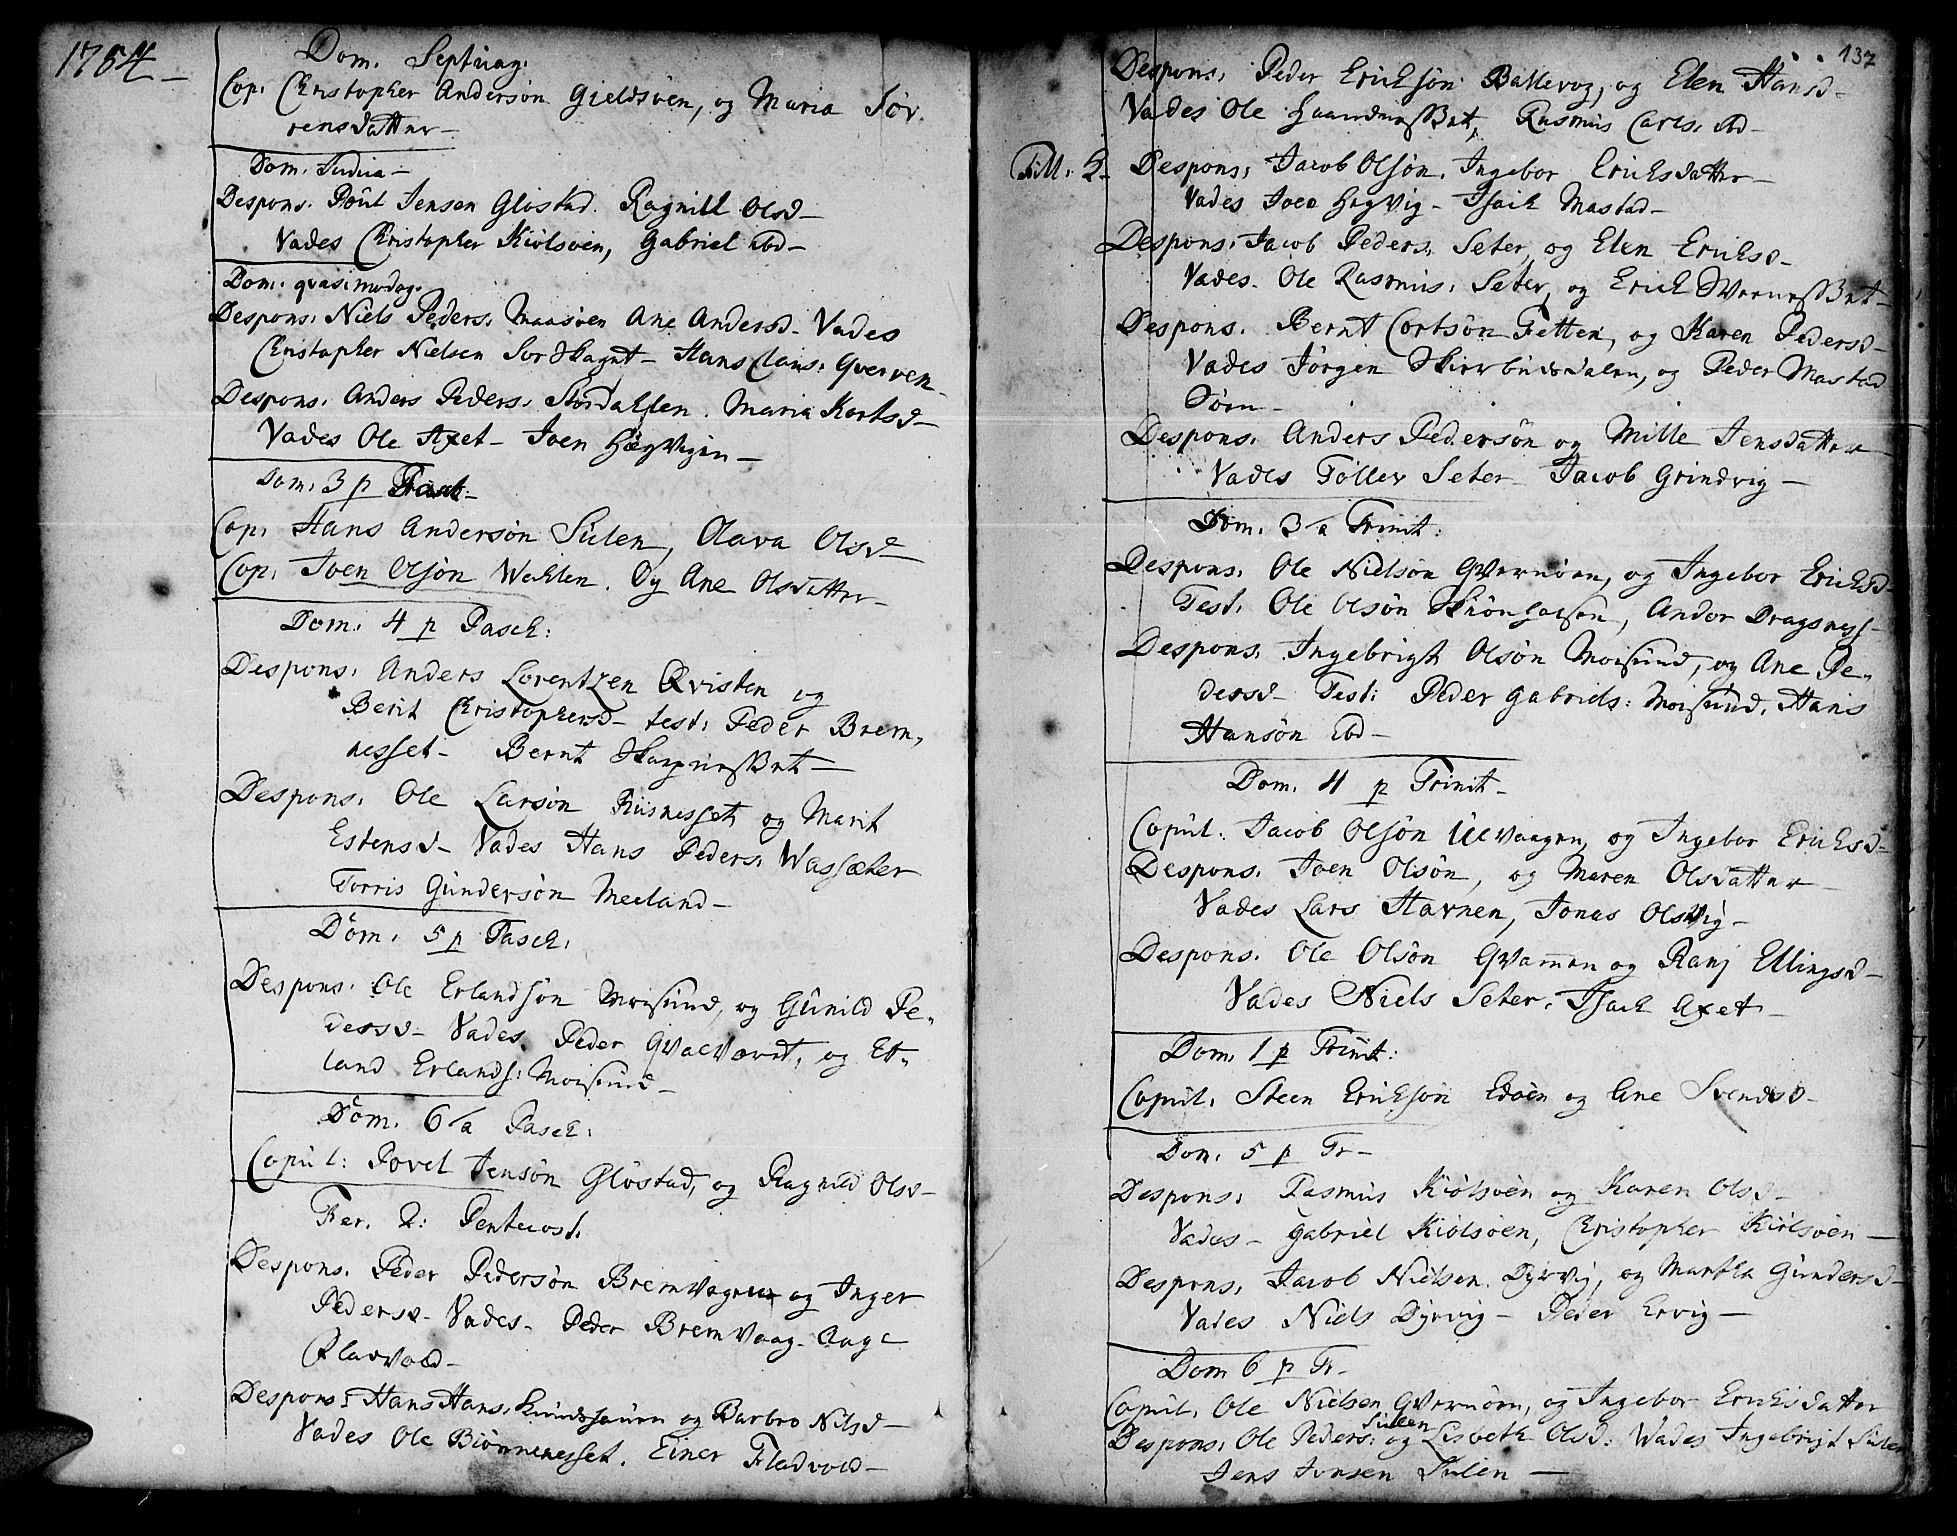 1764
Dom. Septuag.
Cop. Christopher Andersøn Gieldsøen, og Maria Sør,
rensdatter
Dom. Judica
Despons. Poul Jensen Gløstad. Ragnill Olsd
Vades Christopher Kiølsøen, Gabriel ibd
Dom. qvasimodog.
Despons. Niels Peders. Maasøen Ane Andersd Vades
Christopher Nielsen Hans Clans: Qverven
Despons. Anders Peders. Stordahlen. Maria Kortsd
Vades Ole Axet Joen Høgvigin
Dom. 3 p
Cop. Hans Andersøn Sulen, Olava Olsd
Cop. Joen Olsøn Wehlen. Og Ane Olsdatter
Dom. 4 p Pasch:
Despons. Anders Lorentzen Qvisten og
Berit Christophersd test. Peder Brem,
nesset Bernt
Despons. Ole Larsøn Rusnesset og Marit
Estensd Vades Hans Peders. Wassæter
Torris Gundersøn Meeland
Dom. 5 p Pasch.
Despons. Ole Erlandsøn Moisund, og Gunild Pe,
dersd Vades Peder Qvalværet, og Er,
land Erlands: Moisund
Dom. 6 a Pasch.
Copul: Povel Jensøn Gløstad, og Ragnild Olsd
Fer. 2: Pentecost.
Despons. Peder Pedersøn Bremvagen og Inger
Pedersd Vades Peder Bremvaag Aage
Fladvold
Despons: Hans Hans. og Barbro Nilsd
Vades Ole Biørnenesset. Einer Fladvold
137
Despons. Peder Erichsøn Ballevog, og Elen Hansd
Vades Ole Rasmus Carls. ibd
Despons. Jacob Olsøn. Ingebor Erichsdatter
Vades Joen Høgvig Isach Mastad
Despons. Jacob Peders. Seter, og Elen Erichsd
Vades Ole Rasmus. Seter, og Erich
Despons. Bernt Cortsøn Fetten, og Karen Pedersd
Vades Jørgen og Peder Mastad
Søren
Despons. Anders Pedersøn og Mille Jensdatter
Vades Toller Seter Jacob Grindvig
Dom. 3 a Trinit:
Despons. Ole Nielsøn Qvernøen, og Ingebor Erichsd
Test. Ole Olsøn Andor Dragsness
Despons. Ingebrigt Olsøn Moisund, og Ane Pe,
dersd Test: Peder Gabriels: Moisund, Hans
Hansøn ibd
Dom. 4 p Trinit
Copul: Jacob Olsøn Ulvaagen og Ingebor Erichsd
Despons. Joen Olsøn, og Maren Olsdatter
Vades Lars Havnen, Jonas Olsvig
Despons. Ole Olsøn Qvamen og Ranj Ellingsd
Vades Niels Seter. Isach Axet
Dom. 1 p Trinit:
Copul. Steen Erichsøn Edøen og Ane Svendsd
Dom. 5 p Tr
Despons. Rasmus Kiølsøen og Karen Olsd
Vades Gabriel Kiølsøen, Christopher Kiølsøen
Despons. Jacob Nielsen Dyrvig, og Martha Gundersd
Vades Niels Dyrvig Peder Ervig
Dom 6 p Tr
Copul. Ole Nielsen Qvernøen, og Ingebor Erichsdatter
Sulen
Despons. Ole Peders: og Lisbeth Olsd: Wades Ingebrigt Sulen
Jens Jensen Sulen